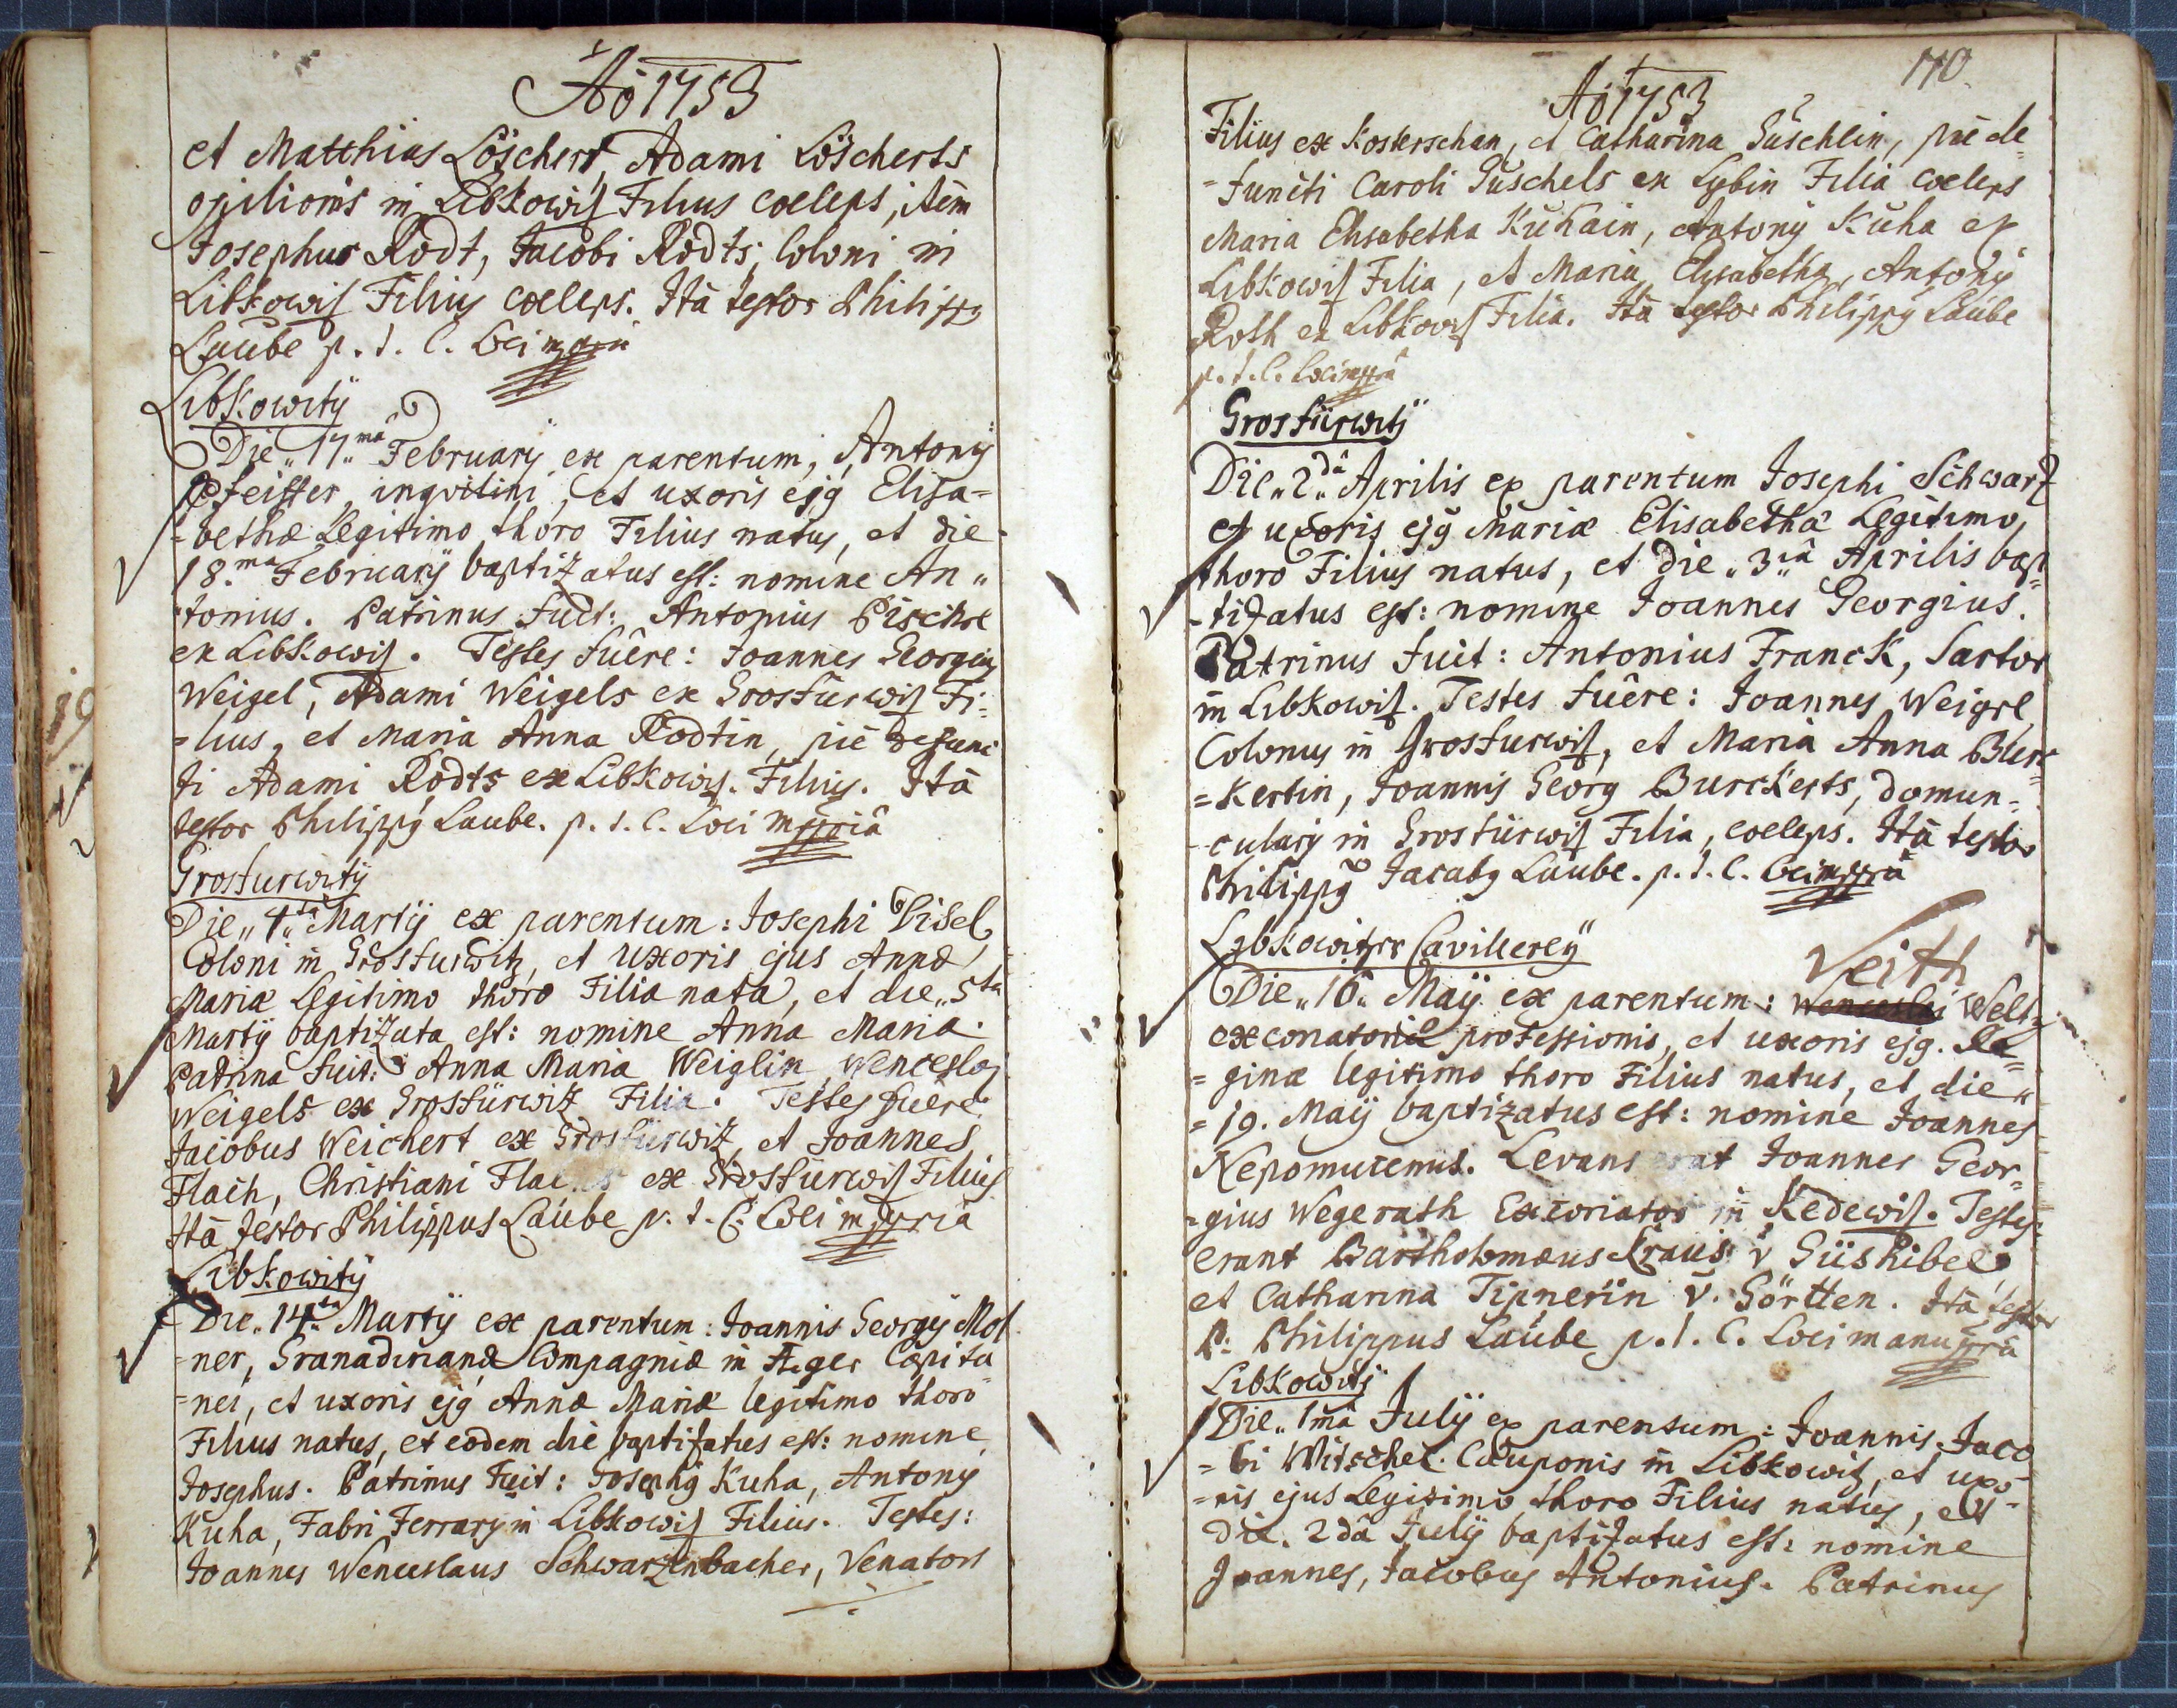 Aõ 1753
et Matthias Löschert, Adami Löscherts
opilionis in Libkowiz Filius coeleps, item
Josephus Rodt, Jacobi Rodts, Coloni in
Libkowiz Filius coeleps. Ità testor Philippg
Laube p. t. C. Loci mppria
Libkowitÿ
Die „17„ma Februarÿ ex parentum, Antonÿ
Pfeiffer inqvilini, et uxoris ejg Elisa=
=bethæ Legitimo thoro Filius natus, et die
18.ma Februarÿ baptizatus est: nomine An„
tonius. Patrinus fuit: Antonius Pischl
ex Libkowiz. Testes fuêre: Joannes Georgius
Weigel, Adami Weigels ex Grosfürwiz Fi=
=lius, et Maria Anna Rodtin, piè defunc
ti Adami Rodts ex Libkowiz. Filius. Ità
testor Philippg Laube. p. t. C. Loci mppriâ
Grosfurwitÿ
Die „4„ta Martÿ ex parentum: Josephi Visel
Coloni in Grosfurwitz, et Uxoris ejus Annæ
Mariæ Legitimo thoro Filia nata, et die „5ta
Martÿ baptizata est: nomine Anna Maria.
Patrina fuit: Anna Maria Weiglin Wenceslai
Weigels ex Grosfürwitz Filia. Testes fuêre
Jacobus Weichert ex Grosfürwitz, et Joannes
Flach, Christiani ex Grosfürwiz Filius
Ità testor Philippus Laube p. t. C. Loci mppria
Libkowitÿ
Die „14„ta Martÿ ex parentum: Joannis Georgÿ Mol
=ner, Granadirianæ Compagniæ in Æger Capita
=nei, et uxoris ejg Annæ Mariæ legitimo thoro
Filius natus, et eodem die baptizatus est: nomine
Josephus. Patrinus Fuit: Josephg Kuha, Antonÿ
Kuha, Fabri Ferrarÿ in Libkowiz Filius. Testes:
Joannes Wenceslaus Schwarzenbacher, Venatoris
110
Aõ 1753
Filius ex Kosterschan, et Catharina Süschlin, piè de=
=functi Caroli Süschels ex Lybin Filia coeleps
Maria Elisabetha Kuhain, Antonÿ Kuha ex
Libkowiz Filia, et Maria Elisabetha, Antonÿ
Roth ex Libkowiz Filia. Ità testor Philippg Laube
p. t. C. Loci mppriâ
Grosfürwitÿ
Die „2„dâ Aprilis ex parentum Josephi Schwarz
et uxoris ejg Mariæ Elisabethæ Legitimo
thoro Filius natus, et die „3„iâ Aprilis bap=
-tizatus est: nomine Joannes Georgius.
Patrinus fuit: Antonius Franck, Sartor
in Libkowiz. Testes fuêre: Joannes Weigel
Colonus in Grosfurwiz, et Maria Anna Burc=
=kertin, Joannis Georg Burckerts, domun=
-cularÿ in Grosfürwiz Filia, coeleps. Ità testor
Philippg Jacobg Laube. p. t. C. Loci mppria
Libkowitzer Cavillereÿ
Veith
Die „16„ Maÿ ex parentum: Wenceslai Weltz
excoriatoriæ professionis, et uxoris ejg. Re=
=ginæ legitimo thoro Filius natus, et die„
=19. Maÿ baptizatus est: nomine Joannes
Nepomucenus. Levans erat Joannes Geor=
=gius Wegerath Excoriator in Redewiz. Testes
erant Bartholomæus Kraus v Süshibel
et Catharina Tipnerin v. Sörtten. Ità testor
P. Philippus Laube p. t. C. Loci manu ppriâ
Libkowitÿ
Die„ 1mâ Julÿ ex parentum: Joannis Jaco
=bi Witschel. Cauponis in Libkowiz, et uxo=
=ris ejus Legitimo thoro Filius natus, et
die. 2dâ Julÿ baptizatus est: nomine
Joannes, Jacobus Antonius. Patrinus